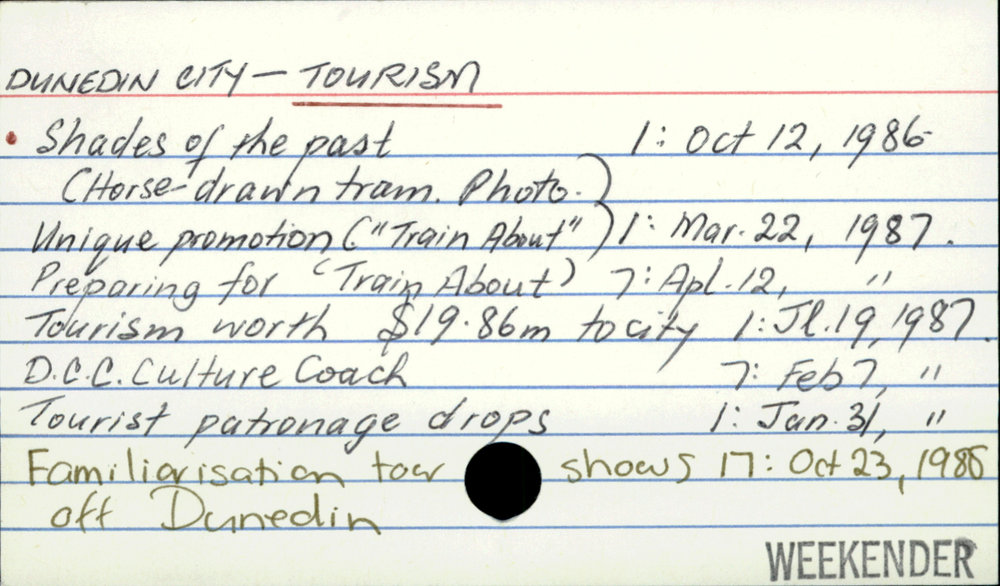 DUNEDIN CITY - TOURISM
• Shades of the past 1: Oct 12, 1986
(Horse-drawn tram. Photo.)
Unique promotion ("Train About") 1: Mar. 22, 1987.
Preparing for "Train About" 7: Apl. 12, "
Tourism worth $19.86m to city 1: Jl. 19, 1987.
D.C.C. Culture Coach 7: Feb 7, "
Tourist patronage drops 1: Jan. 31, "
Familiarisation tour shows 17: Oct 23, 1988
off Dunedin
WEEKENDER